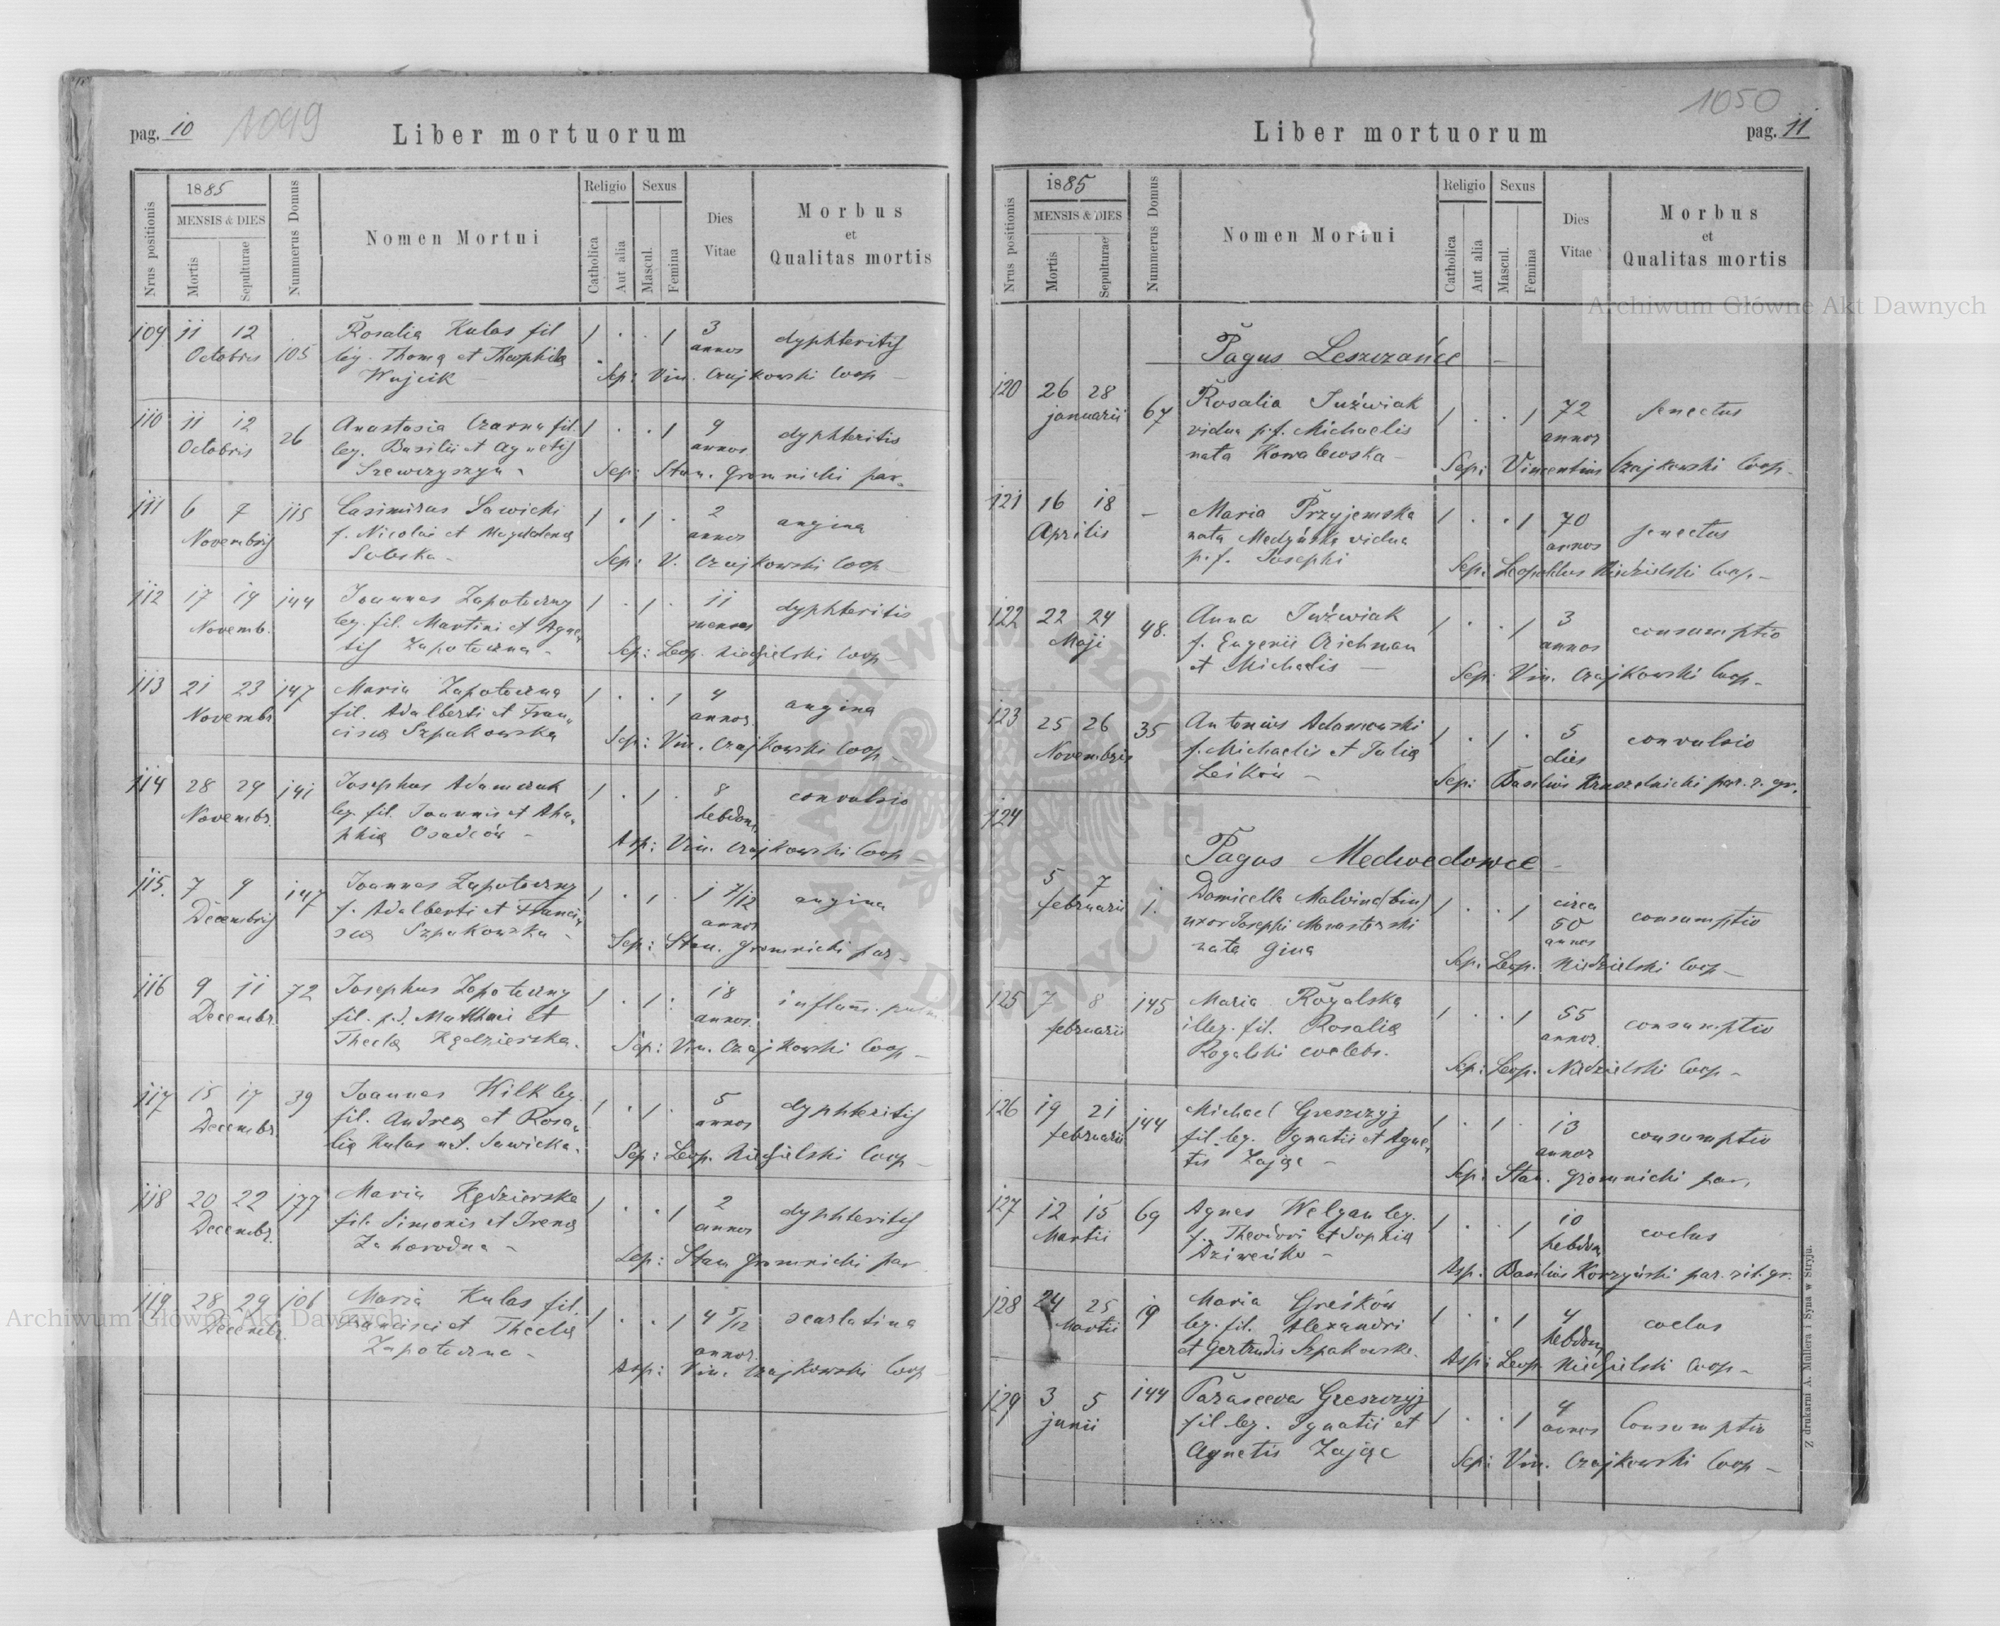 pag. 10 1049
Liber mortuorum
Nrus positionis
1885
MENSIS & DIES
Mortis
Sepulturae
Nummerus Domus
Nomen Mortui
Religio
Catholica
Aut alia
Sexus
Mascul.
Femina
Dies
Vitae
Morbus
et
Qualitas mortis
109 11 12 Rosalia Kulas fil 1 . . 1 3 dyphteritis
Octobris 105 leg. Thoma et Theophila annos
Wujcik Sep: Vin. Czajkowski Coop
110 11 12 Anastasia Czarna fil. 1 . . 1 9 dyphteritis
Octobris 26 leg. Basilii et Agnetis annos
Szewczyszyn Sep: Stan. Gromnicki par.
111 6 7 115 Casimirus Sawicki 1 . 1 . 2 angina
Novembris f. Nicolai et Magdalena annos
Sobska Sep: V. Czajkowski Coop
112 17 19 144 Joannes Zapoteczny 1 . 1 . 11 dyphteritis
Novemb. leg. fil. Martini et Agne menses
tis Zapoteczna Sep: Leop. Niedzielski Coop
113 21 23 147 Maria Zapoteczna 1 . . 1 4 angina
Novembr. fil. Adalberti et Fran annos.
cisca Szpakowska Sep: Vin. Czajkowski Coop
114 28 29 141 Josephus Adamczuk 1 . 1 . 8 convulsio
Novembr. leg. fil. Joannis et Aha hebdom.
phia Osadców Asp: Vin. Czajkowski Coop
115. 7 9 147 Joannes Zapoteczny 1 . 1 . 1 7/12 angina
Decembris f. Adalberti et Franci annos
sca Szpakowska Sep: Stan. Gromnicki par
116 9 11 72 Josephus Zapoteczny 1 . 1 . 18 inflam.
Decembr. fil. p.d. Matthaei et annos.
Thecla Kędzierska. Sep: Vin. Czajkowski Coop
117 15 17 39 Joannes Wilk leg. 1 . 1 . 5 dyphteritis
Decembr. fil. Andrea et Rosa annos
lia Kulas nat. Sawicka. Sep: Leop. Niedzielski Coop
118 20 22 177 Maria Kędzierska 1 . . 1 2 dyphteritis
Decembr. fil. Simonis et Irena annos
Zahorodna Sep: Stan Gromnicki par
119 28 29 106 Maria Kulas fil. 1 . . 1 4 5/12 scarlatina
Decembr. Francisci et Thecla annos.
Zapoteczna Asp: Vin. Czajkowski Coop
1050
Liber mortuorum pag. 11
Nrus positionis
1885
MENSIS & DIES
Mortis
Sepulturae
Nummerus Domus
Nomen Mortui
Religio
Catholica
Aut alia
Sexus
Mascul.
Femina
Dies
Vitae
Morbus
et
Qualitas mortis
Pagus Leszczańce
120 26 28 67 Rosalia Juźwiak 1 . . 1 72 senectus
januarii vidua p.f. Michaelis annos
nata Kowalewska Sep: Vincentius Czajkowski Coop.
121 16 18 Maria Przyjemska 1 . . 1 70 senectus
Aprilis nata vidua annos
p.f. Josephi Sep: Leopoldus Niedzielski Coop
122 22 24 48. Anna Juźwiak 1 . . 1 3 consumptio
Maji f. Eugenii Czichman annos
et Michaelis Sep: Vin. Czajkowski Coop.
123 25 26 35 Antonius Adamowski 1 . 1 . 5 convulsio
Novembris f. Michaelis et Julia dies
Leśków Sep: Basilius Kruszelnicki par. r. gr.
124
Pagus Medwedowce
5 7 Domicella Malvina (bin) 1 . . 1 circa consumptio
februarii 1. uxor Josephi Monasterski 60
nata Gina annos
Sep. Leop. Niedzielski Coop
125 7 8 145 Maria Rogalska 1 . . 1 55 consumptio
februarii illeg. fil. Rosalia annos.
Rogalski coelebs. Sep: Leop. Niedzielski Coop
126 19 21 144 Michael Greszczyj 1 . 1 . 13 consumptio
februarii fil. leg. Ignatii et Agne annos
tis Zając Sep. Stan. Gromnicki par.
127 12 15 69 Agnes Welgan leg. 1 . . 1 10 coelus
Martii f. Theodori et Sophia hebdom.
Dziweńko Asp: Basilius Korzyński par. rit. gr.
128 24 25 19 Maria Greśków 1 . . 1 4 coelus
Martii leg. fil. Alexandri hebdom
et Gertrudis Szpakowska. Asp: Leop. Niedzielski Coop
129 3 5 144 Parasceva Greszczyj 1 . . 1 4 Consumptio
junii fil leg. Ignatii et annos
Agnetis Zając Sep: Vin. Czajkowski Coop
Z drukarni A. Müllera i Syna w Stryju.
Archiwum Główne Akt Dawnych
Archiwum Główne Akt Dawnych
ARCHIWUM GŁÓWNE AKT DAWNYCH